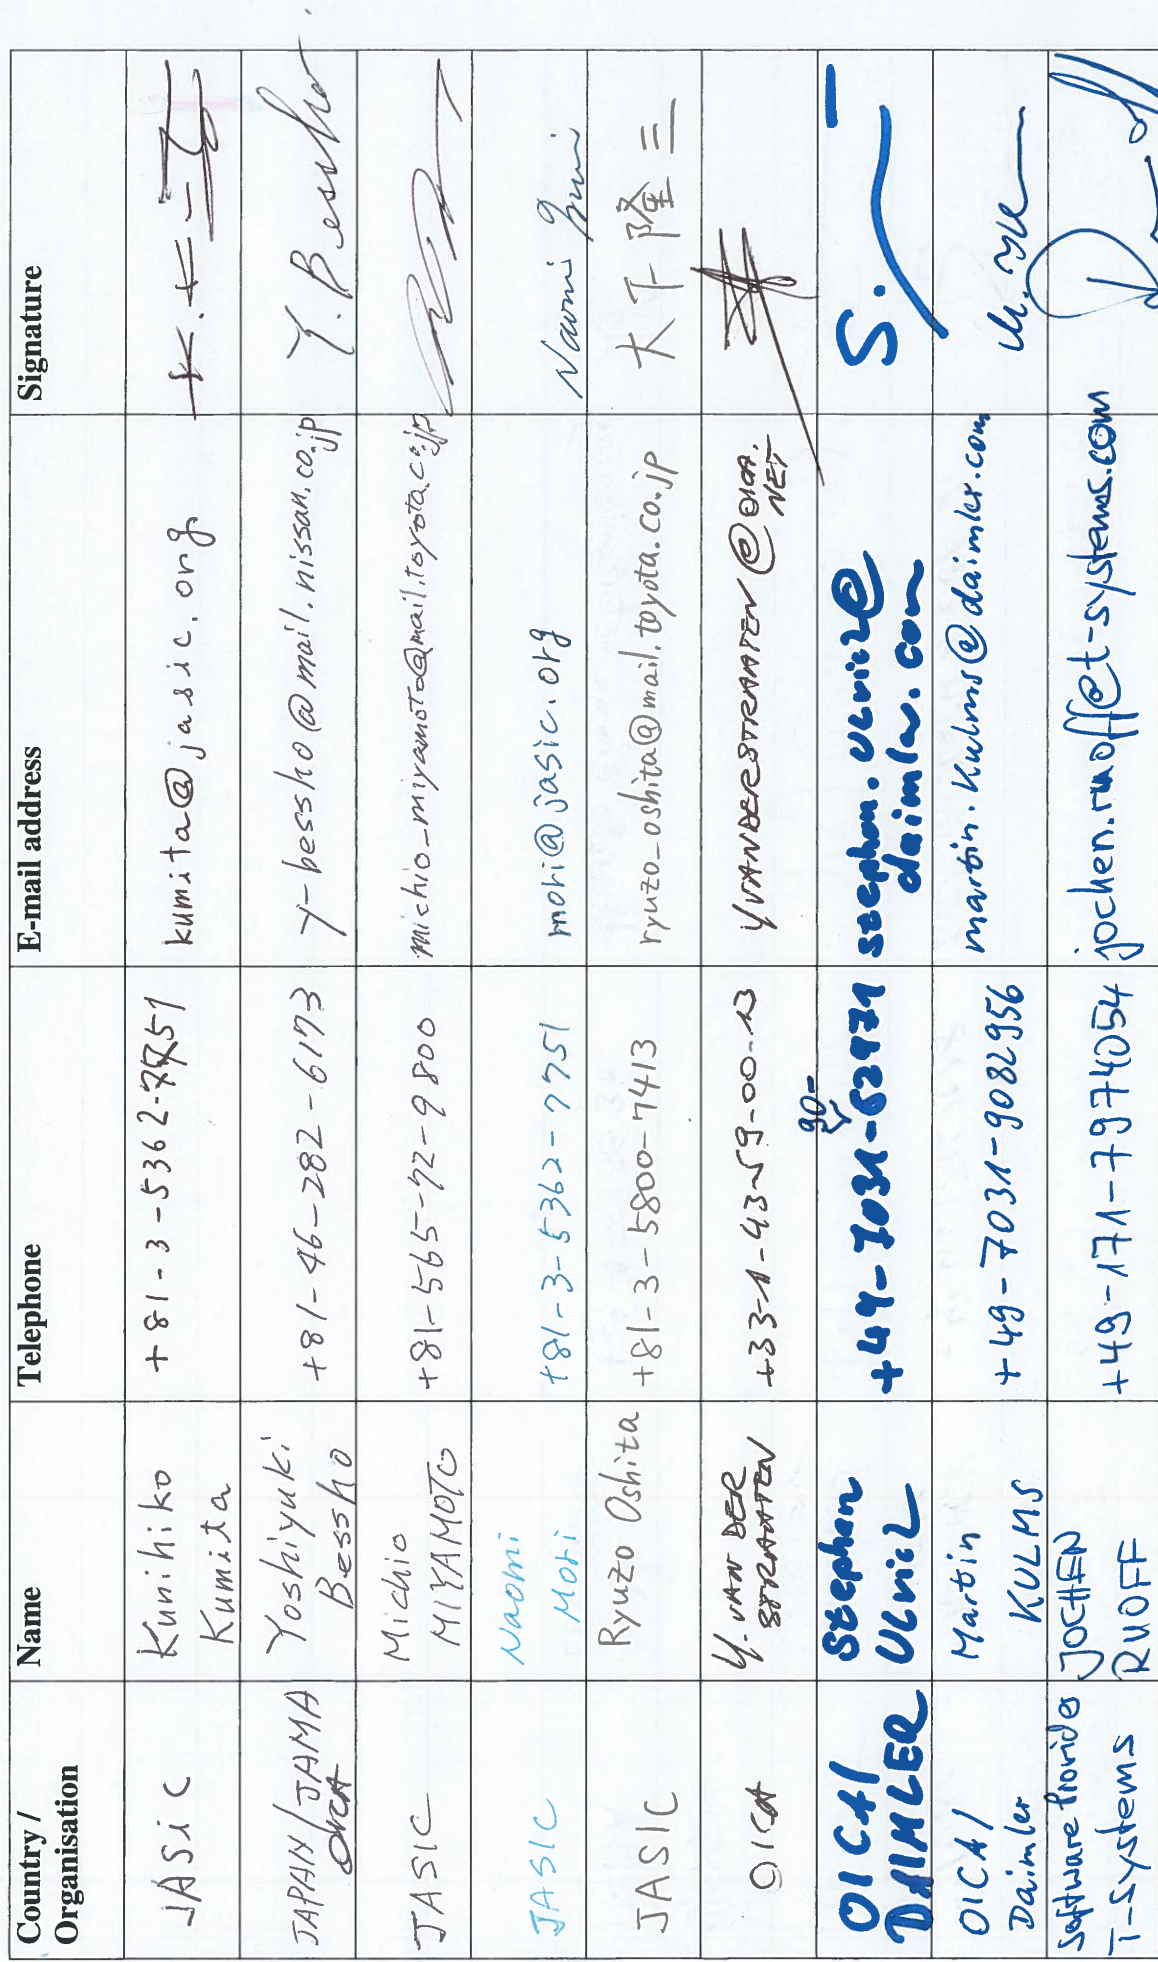 Country /
Organisation
Name
Telephone
E-mail address
Signature
JASIC
Kunihiko
Kumita
+81-3-5362-7751
kumita@jasic.org
JAPAN/JAMA
OICA
Yoshiyuki
Bessho
+81-46-282-6173
y-bessho@mail.nissan.co.jp
Y. Bessho
JASIC
Michio
MIYAMOTO
+81-565-72-9800
michio_miyamoto@mail.toyota.co.jp
JASIC
Naomi
Mori
+81-3-5362-7751
mori@jasic.org
Naomi
JASIC
Ryuzo Oshita
+81-3-5800-7413
ryuzo_oshita@mail.toyota.co.jp
大下隆三
OICA
Y. VAN DER
STRAATEN
+33-1-43-59-00-13
YVANDERSTRAATEN@OICA.
NET
OICA/
DAIMLER
Stephan
90-
+49-7031-
stephan.
daimler.com
S.
OICA/
Daimler
Martin
KULMS
+49-7031-9082956
martin.kulms@daimler.com
Software Provider
T-Systems
JOCHEN
RUOFF
+49-171-7974054
jochen.ruoff@t-systems.com